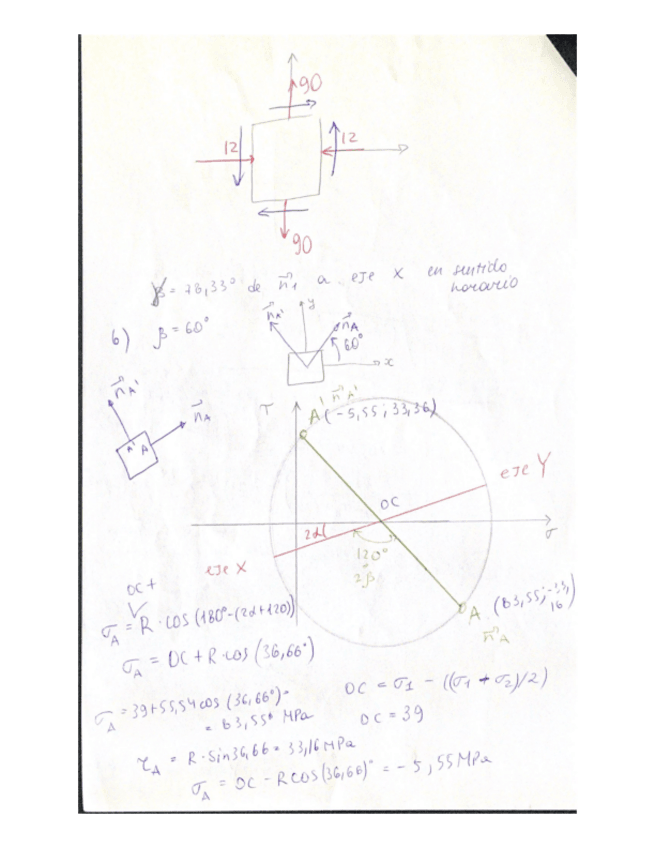 90
12
12
90
β = 28,33° de n1 a eje X en sentido
horario
b) β = 60°
nA'
y
nA
60°
x
nA'
nA
A' A
τ
A' nA'
(-5,55 ; 33,36)
eje Y
OC
σ
2α
120°
2β
eje X
OC +
A (83,55; -33,16)
nA
σA = R · cos (180° - (2α + 120))
σA = OC + R · cos (36,66°)
σA = 39 + 55,54 cos (36,66°) =
= 83,55 MPa
OC = σ1 - ((σ1 + σ2)/2)
OC = 39
τA = R · sin 36,66 = 33,16 MPa
σA = OC - R cos (36,66)° = -5,55 MPa